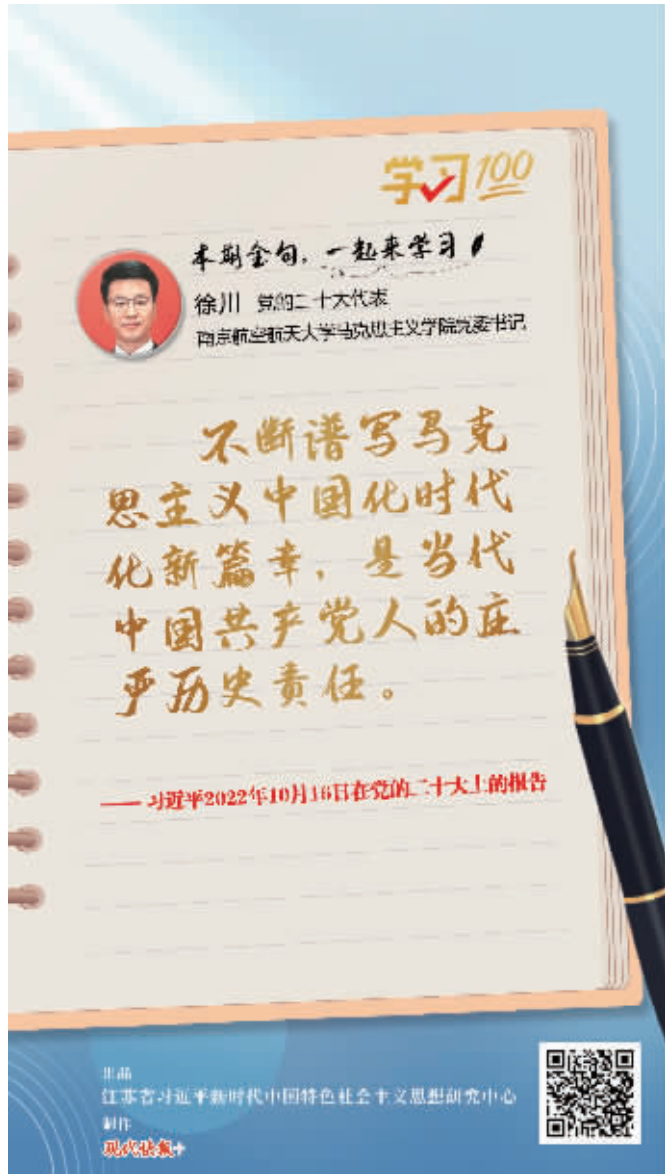 学习100
本期金句，一起来学习
徐川 党的二十大代表
南京航空航天大学马克思主义学院党委书记
不断谱写马克
思主义中国化时代
化新篇章，是当代
中国共产党人的庄
严历史责任。
—— 习近平2022年10月16日在党的二十大上的报告
出品
江苏省习近平新时代中国特色社会主义思想研究中心
制作
现代快报+